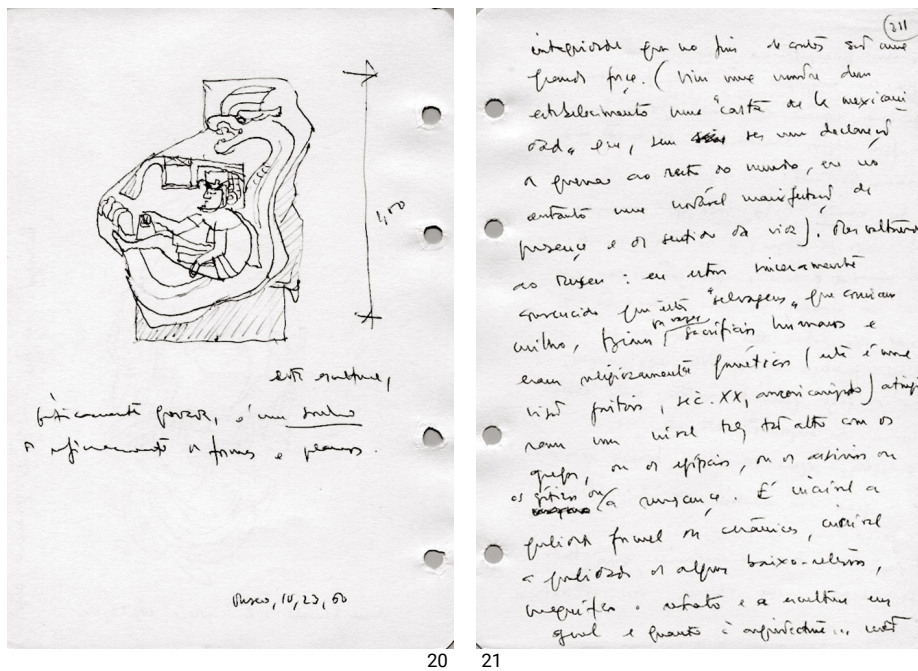 1,50
esta escultura,
fisicamente pousada, é um sonho
o refinamento de formas e planos.
Museo, 10, 23, 60
20
211
integridade que no fim de contas será uma
grande força. (Vim uma montra dum
estabelecimento uma "carta de la mexicani
dad" que, sem ser uma declaração
de guerra ao resto do mundo, era no
entanto uma notável manifestação de
presença e de sentido da vida). Mas voltando
ao Museu: eu estou sinceramente
convencido que estes "selvagens" que comiam
milho, faziam sacrifícios humanos e
eram religiosamente fanáticos (esta é uma
visão, séc. XX,) atingi
ram um nível tão alto como os
gregos, ou os egípcios, ou os assírios ou
os góticos ou a renascença. É incrível a
qualidade formal das cerâmicas, incrível
a qualidade de alguns baixo-relevos,
magnífico o retrato e a escultura em
geral e quanto à arquitectura... está
21